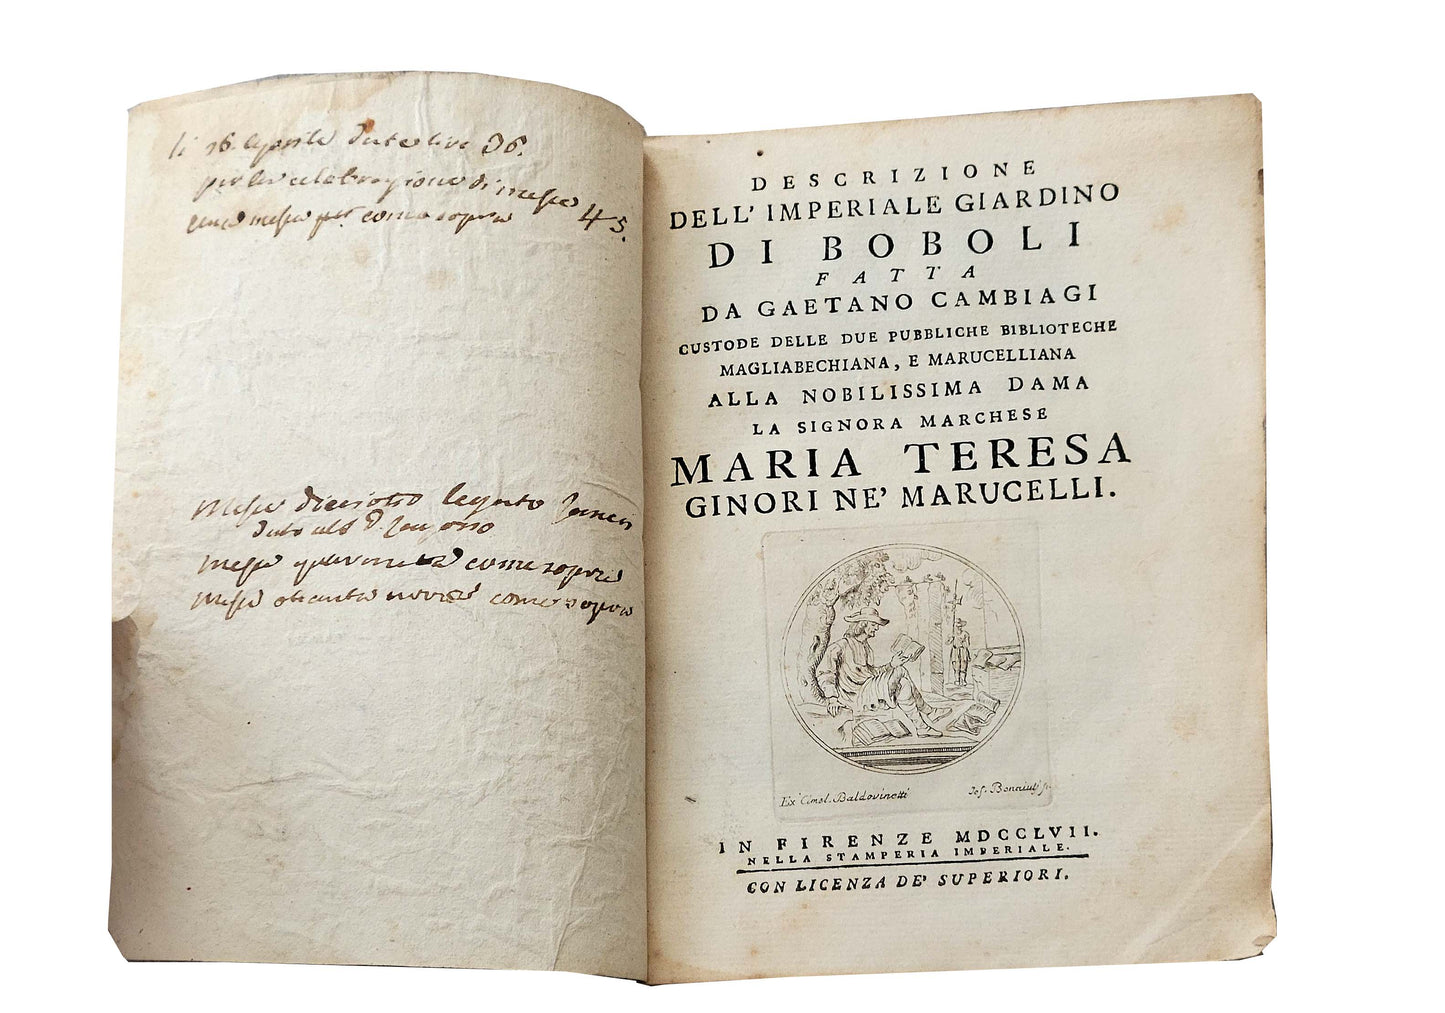 li 16. Aprile dato lire 36.
per la celebrazione di messe 45.
una messa per come sopra
Messe diciotto legato
dato al
messe quaranta come sopra
Messe ottanta nove come sopra
DESCRIZIONE
DELL' IMPERIALE GIARDINO
DI BOBOLI
FATTA
DA GAETANO CAMBIAGI
CUSTODE DELLE DUE PUBBLICHE BIBLIOTECHE
MAGLIABECHIANA, E MARUCELLIANA
ALLA NOBILISSIMA DAMA
LA SIGNORA MARCHESE
MARIA TERESA
GINORI NE' MARUCELLI.
Ex Cimel. Baldovinetti Jos. Benaiuti f.
IN FIRENZE MDCCLVII.
NELLA STAMPERIA IMPERIALE.
CON LICENZA DE' SUPERIORI.